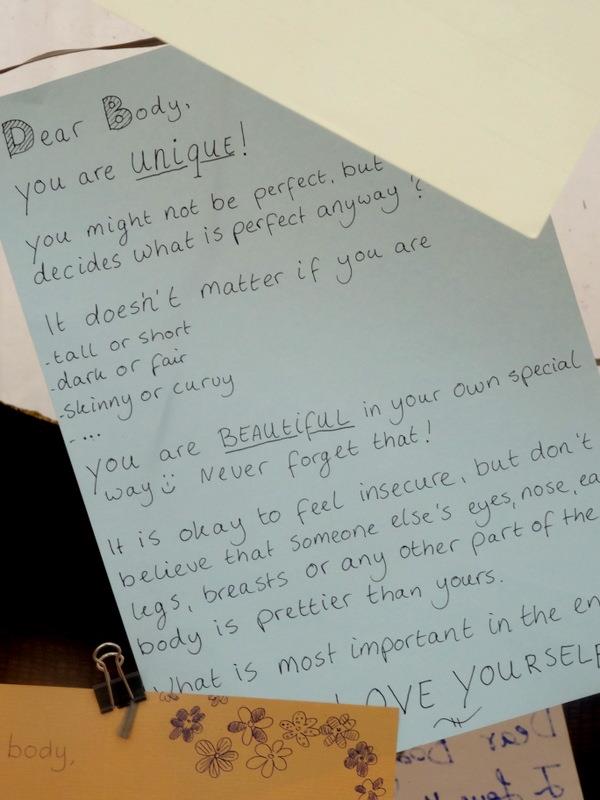 Dear Body,
you are unique!
you might not be perfect, but
decides what is perfect anyway?
It doesn't matter if you are
-tall or short
-dark or fair
-skinny or curvy
-...
you are BEAUtifUL in your own special
way Never forget that!
It is okay to feel insecure, but don't
believe that someone else's eyes, nose, ea
legs, breasts or any other part of the
body is prettier than yours.
What is most important in the en
LOVE YOURSELF
body,
Dear